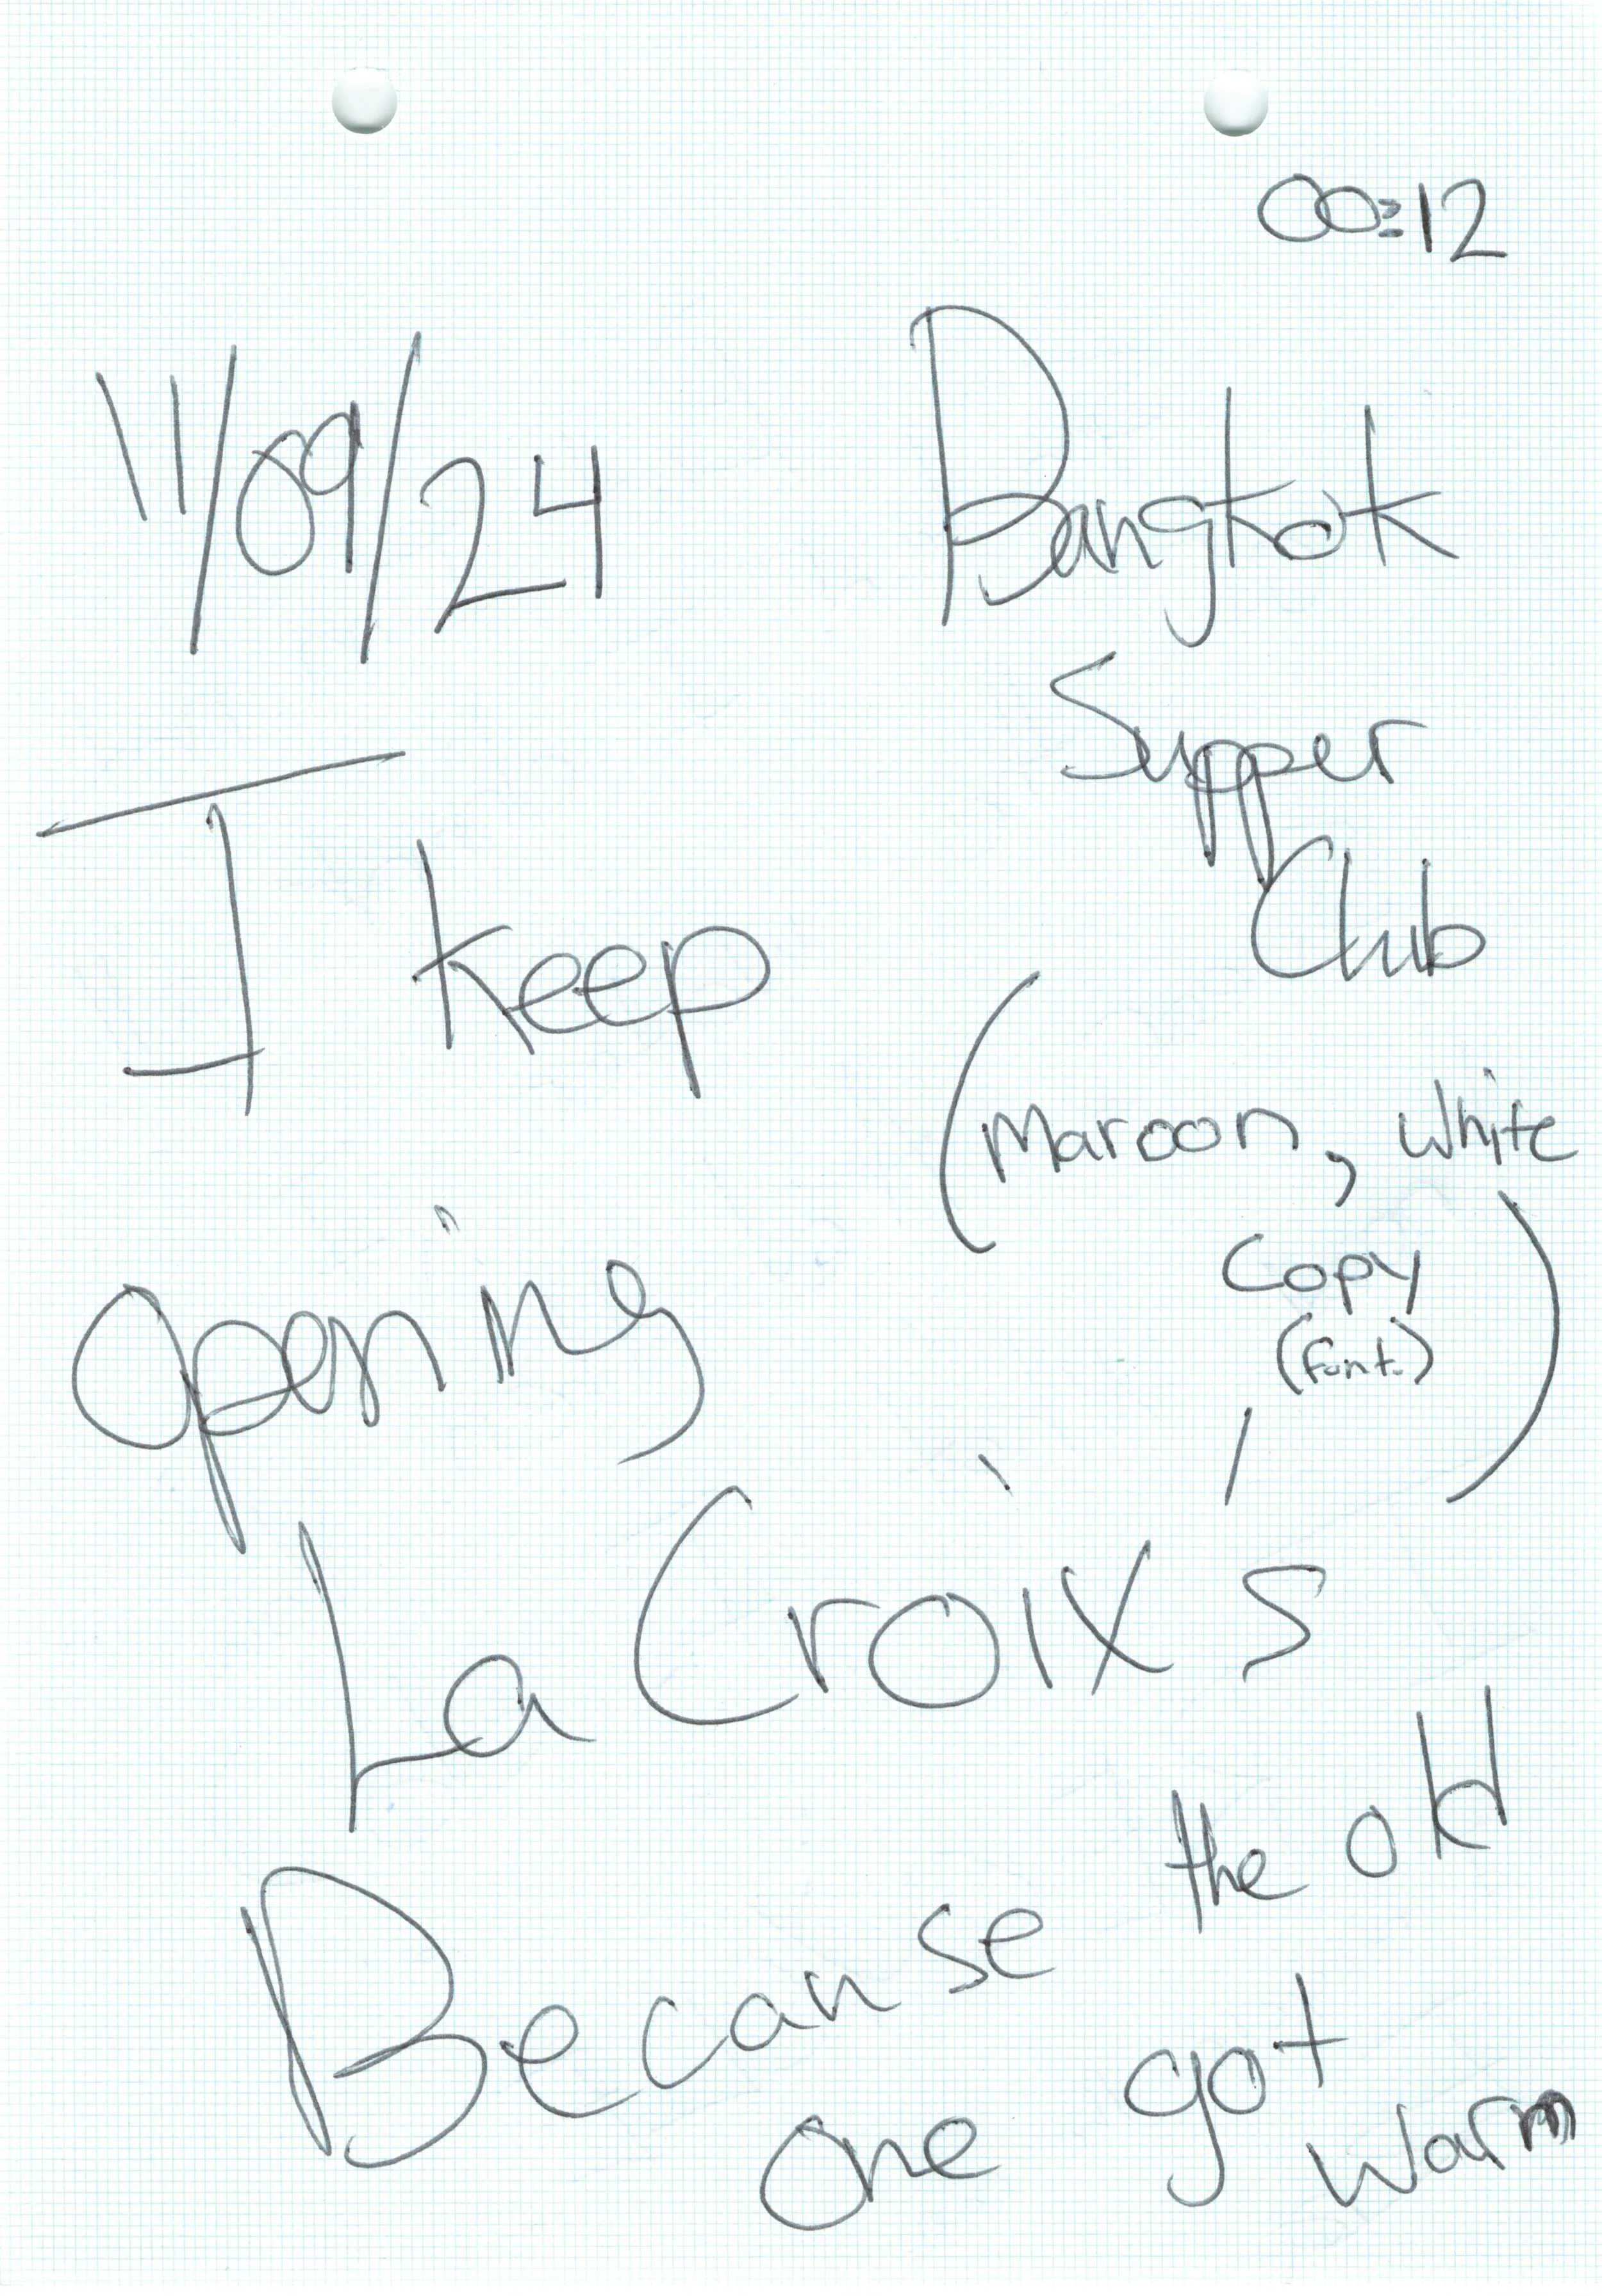 00:12
11/09/24
Bangkok
Supper
Club
(Maroon, White
Copy
(font.)
)
I keep
opening
La Croix's
Because the old
one got
warm